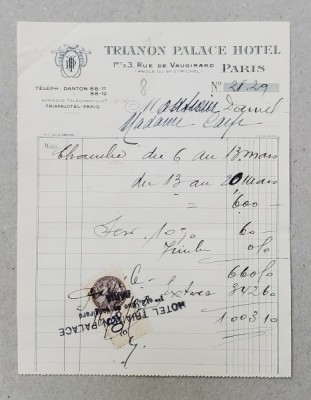 TRIANON PALACE HOTEL
1bis & 3, RUE DE VAUGIRARD
(ANGLE DU BD ST-MICHEL)
PARIS
TÉLÉPH : DANTON 88-11
88-12
ADRESSE TÉLÉGRAPHIQUE
TRIAPALOTEL-PARIS
8
No 2829
Madame
Chambre du 6 au 13 mars
du 13 au 20 mars
600 —
Serv. 10% 60 —
Timbre 0 80
660 80
Extras 342 60
1003 10
HOTEL TRIANON PALACE